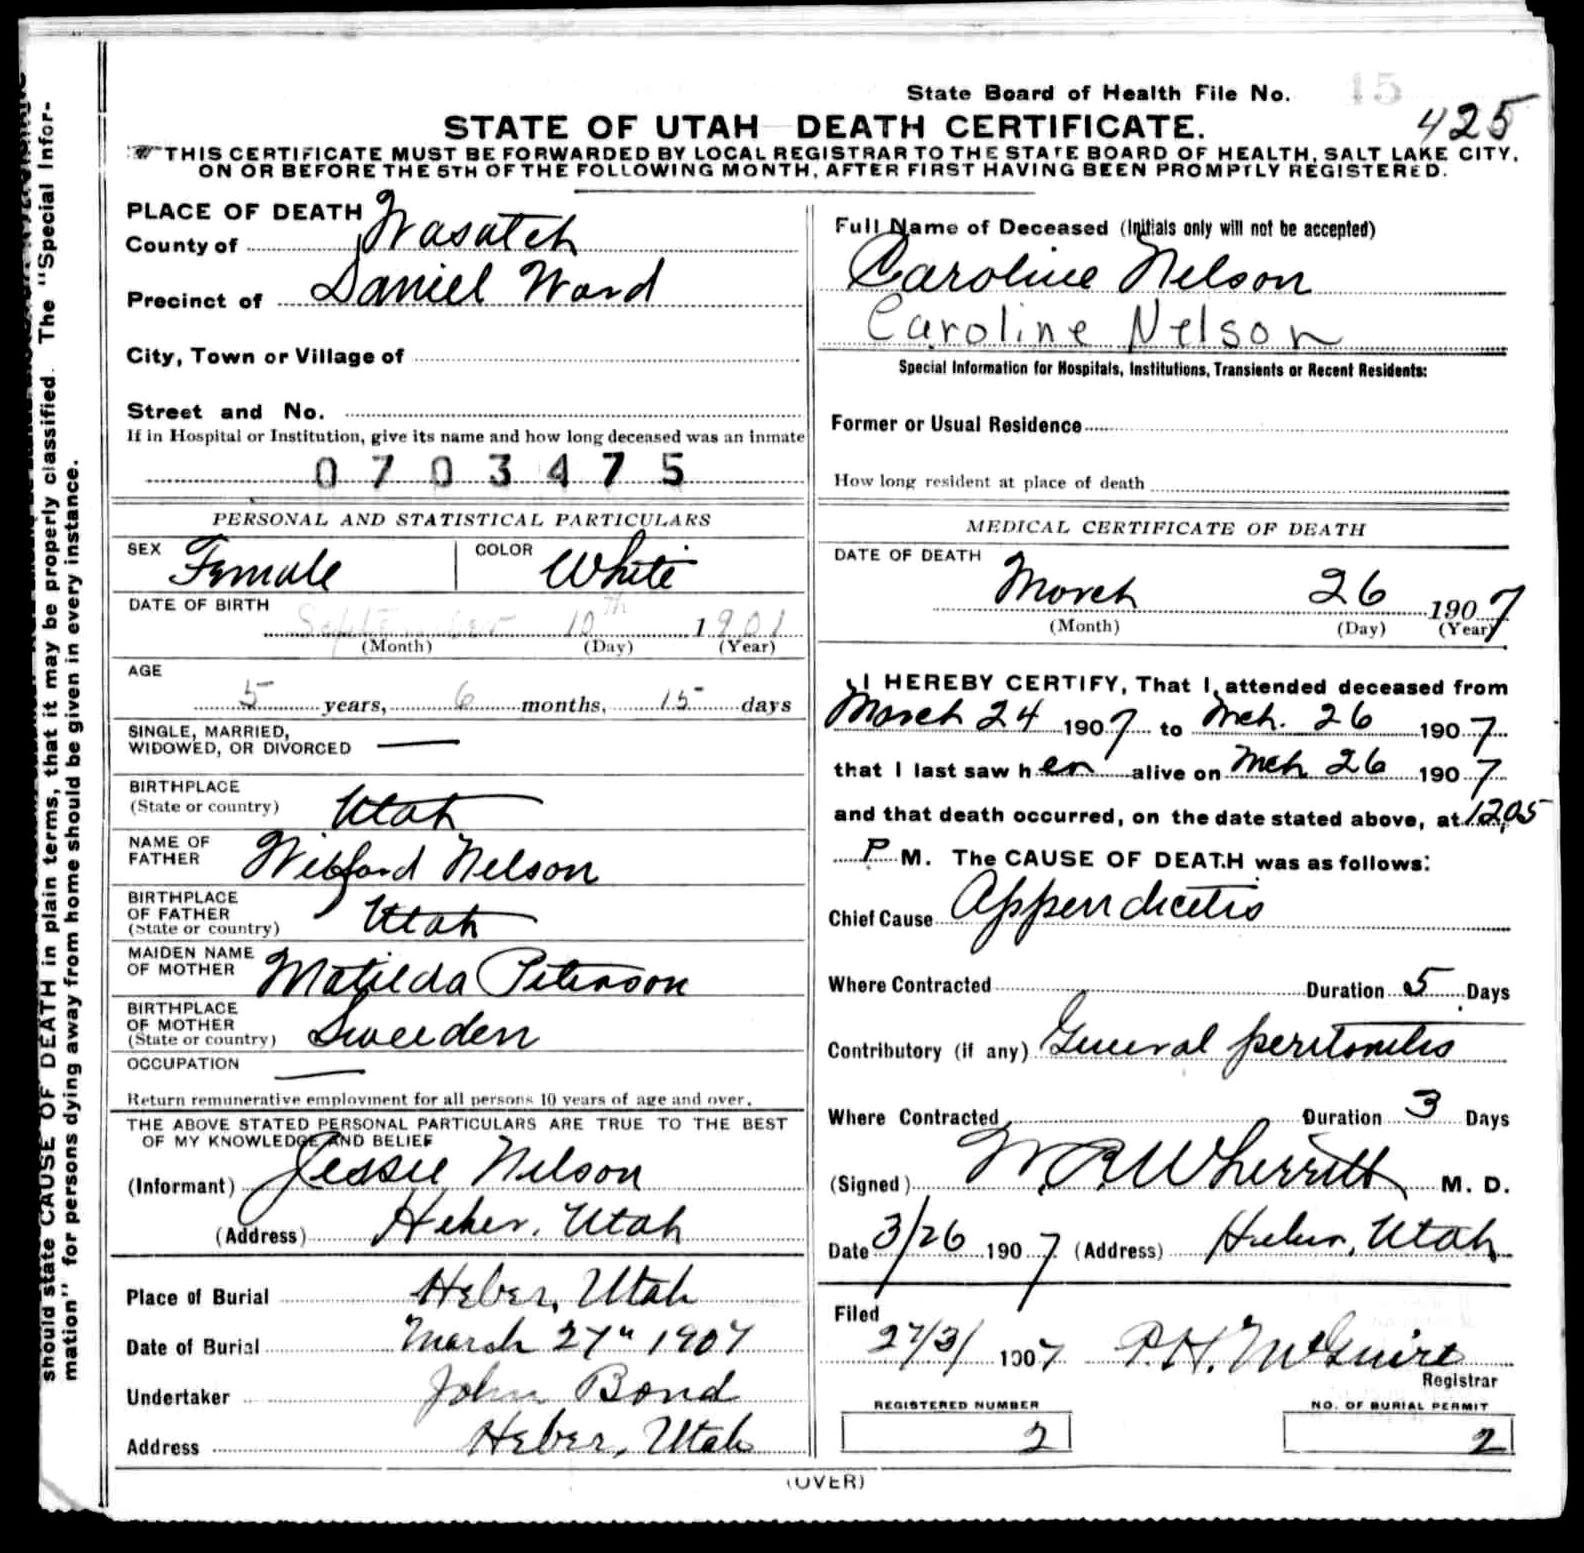 State Board of Health File No. 15
425
STATE OF UTAH DEATH CERTIFICATE.
THIS CERTIFICATE MUST BE FORWARDED BY LOCAL REGISTRAR TO THE STATE BOARD OF HEALTH, SALT LAKE CITY,
ON OR BEFORE THE 5TH OF THE FOLLOWING MONTH, AFTER FIRST HAVING BEEN PROMPTLY REGISTERED.
should state CAUSE OF DEATH in plain terms, that it may be properly classified. The "Special Infor-
mation" for persons dying away from home should be given in every instance.
PLACE OF DEATH
County of Wasatch
Precinct of Daniel Ward
City, Town or Village of
Street and No.
If in Hospital or Institution, give its name and how long deceased was an inmate
0703475
PERSONAL AND STATISTICAL PARTICULARS
SEX Female COLOR White
DATE OF BIRTH
September 10th 1901
(Month) (Day) (Year)
AGE
5 years, 6 months, 15 days
SINGLE, MARRIED,
WIDOWED, OR DIVORCED
BIRTHPLACE
(State or country) Utah
NAME OF
FATHER Wilford Nelson
BIRTHPLACE
OF FATHER
(State or country) Utah
MAIDEN NAME
OF MOTHER Matilda Peterson
BIRTHPLACE
OF MOTHER
(State or country) Sweeden
OCCUPATION
Return remunerative employment for all persons 10 years of age and over.
THE ABOVE STATED PERSONAL PARTICULARS ARE TRUE TO THE BEST
OF MY KNOWLEDGE AND BELIEF
(Informant) Jessie Nelson
(Address) Heber, Utah
Place of Burial Heber, Utah
Date of Burial March 27" 1907
Undertaker John Bond
Address Heber, Utah
Full Name of Deceased (Initials only will not be accepted)
Caroline Nelson
Caroline Nelson
Special Information for Hospitals, Institutions, Transients or Recent Residents:
Former or Usual Residence
How long resident at place of death
MEDICAL CERTIFICATE OF DEATH
DATE OF DEATH
March 26 1907
(Month) (Day) (Year)
I HEREBY CERTIFY, That I attended deceased from
March 24 1907 to Mch. 26 1907
that I last saw her alive on Mch 26 1907
and that death occurred, on the date stated above, at 12.05
P M. The CAUSE OF DEATH was as follows:
Chief Cause Appendicitis
Where Contracted Duration 5 Days
Contributory (if any) General peritonitis
Where Contracted Duration 3 Days
(Signed) W. R. Wherritt M. D.
Date 3/26 1907 (Address) Heber, Utah
Filed
27/3/ 1907 P. H. McGuire
Registrar
REGISTERED NUMBER
2
NO. OF BURIAL PERMIT
2
(OVER)